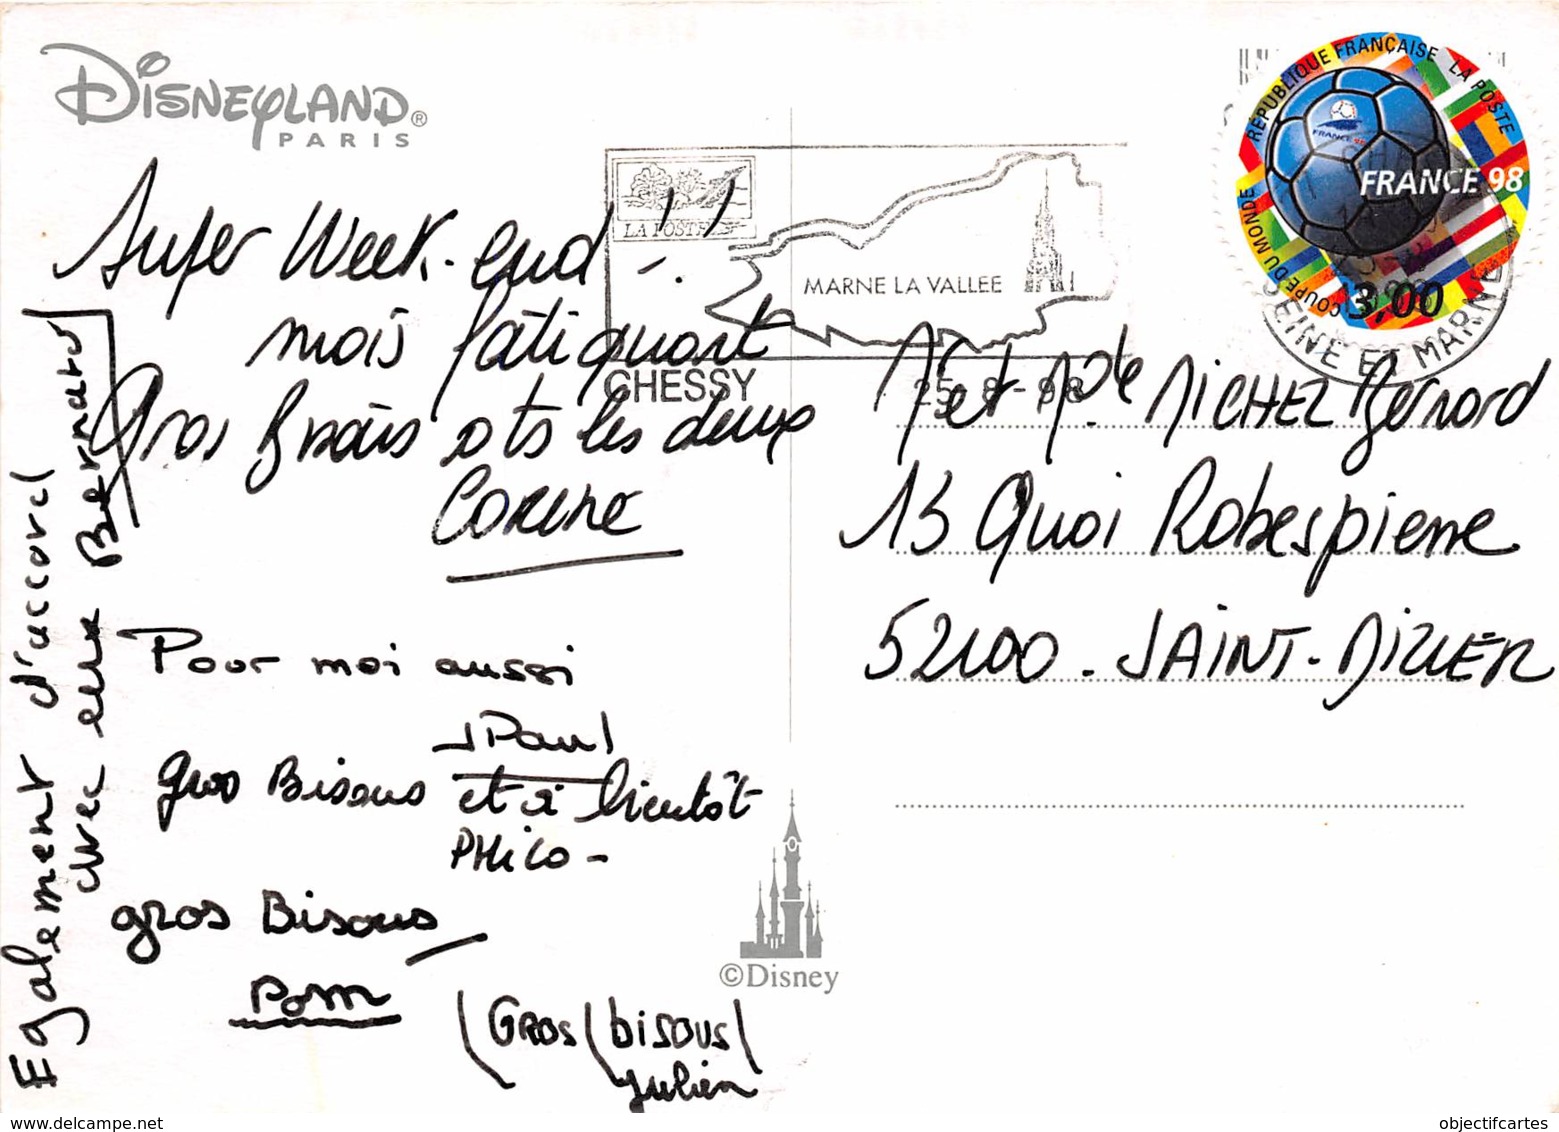 DISNEYLAND®
PARIS
Super Week-end !!
mais fatiguant
Gros bisous à ts les deux
Corine
Pour moi aussi
JPaul
gros Bisous et à bientôt
PHilo -
gros Bisous
Pom
(GROS (bisous)
Julien
Egalement d'accord
avec eux Bernard
LA POSTE
MARNE LA VALLEE
CHESSY
25-8-98
RÉPUBLIQUE FRANÇAISE LA POSTE
FRANCE 98
FRANCE 98
COUPE DU MONDE
3,00
SEINE ET MARNE
Mr et Mme MICHEZ Bernard
13 Quai Robespierre
52100 - SAINT-DIZIER
©Disney
http://www.delcampe.net
objectifcartes